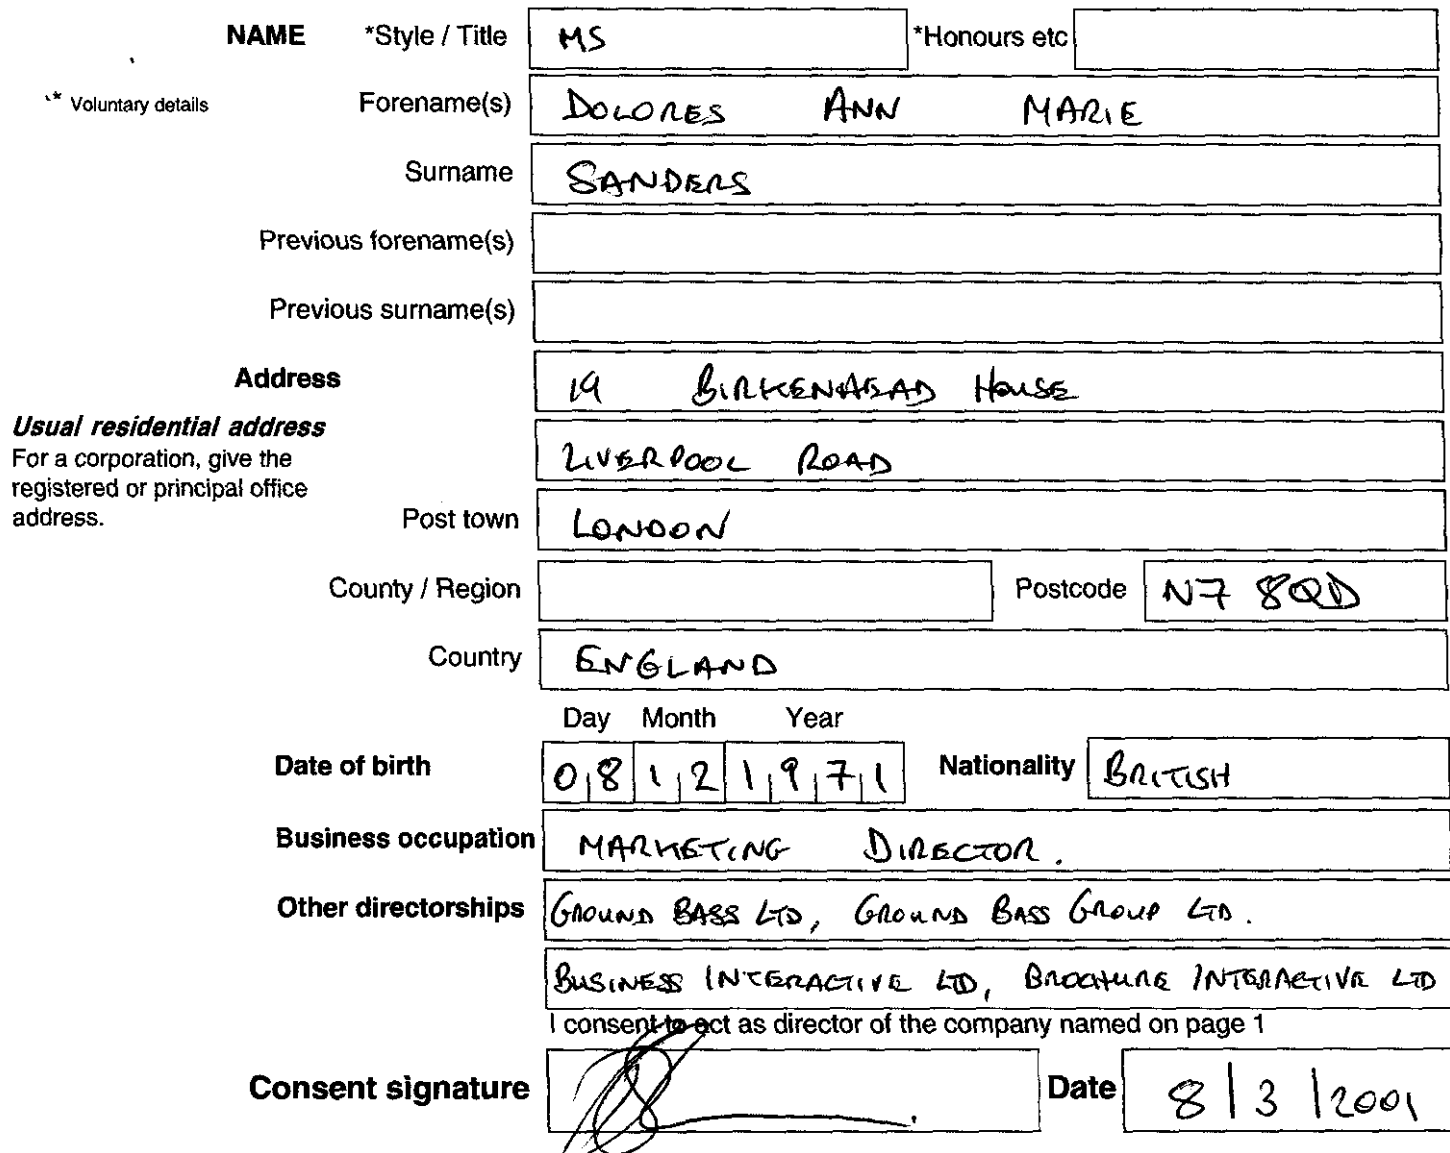 NAME *Style / Title MS *Honours etc
* Voluntary details Forename(s) DOLORES ANN MARIE
Surname SANDERS
Previous forename(s)
Previous surname(s)
Address 19 BIRKENHEAD HOUSE
Usual residential address LIVERPOOL ROAD
For a corporation, give the
registered or principal office
address. Post town LONDON
County / Region Postcode N7 8QD
Country ENGLAND
Day Month Year
Date of birth 08 12 1971 Nationality BRITISH
Business occupation MARKETING DIRECTOR.
Other directorships GROUND BASS LTD, GROUND BASS GROUP LTD.
BUSINESS INTERACTIVE LTD, BROCHURE INTERACTIVE LTD
I consent to act as director of the company named on page 1
Consent signature Date 8/3/2001